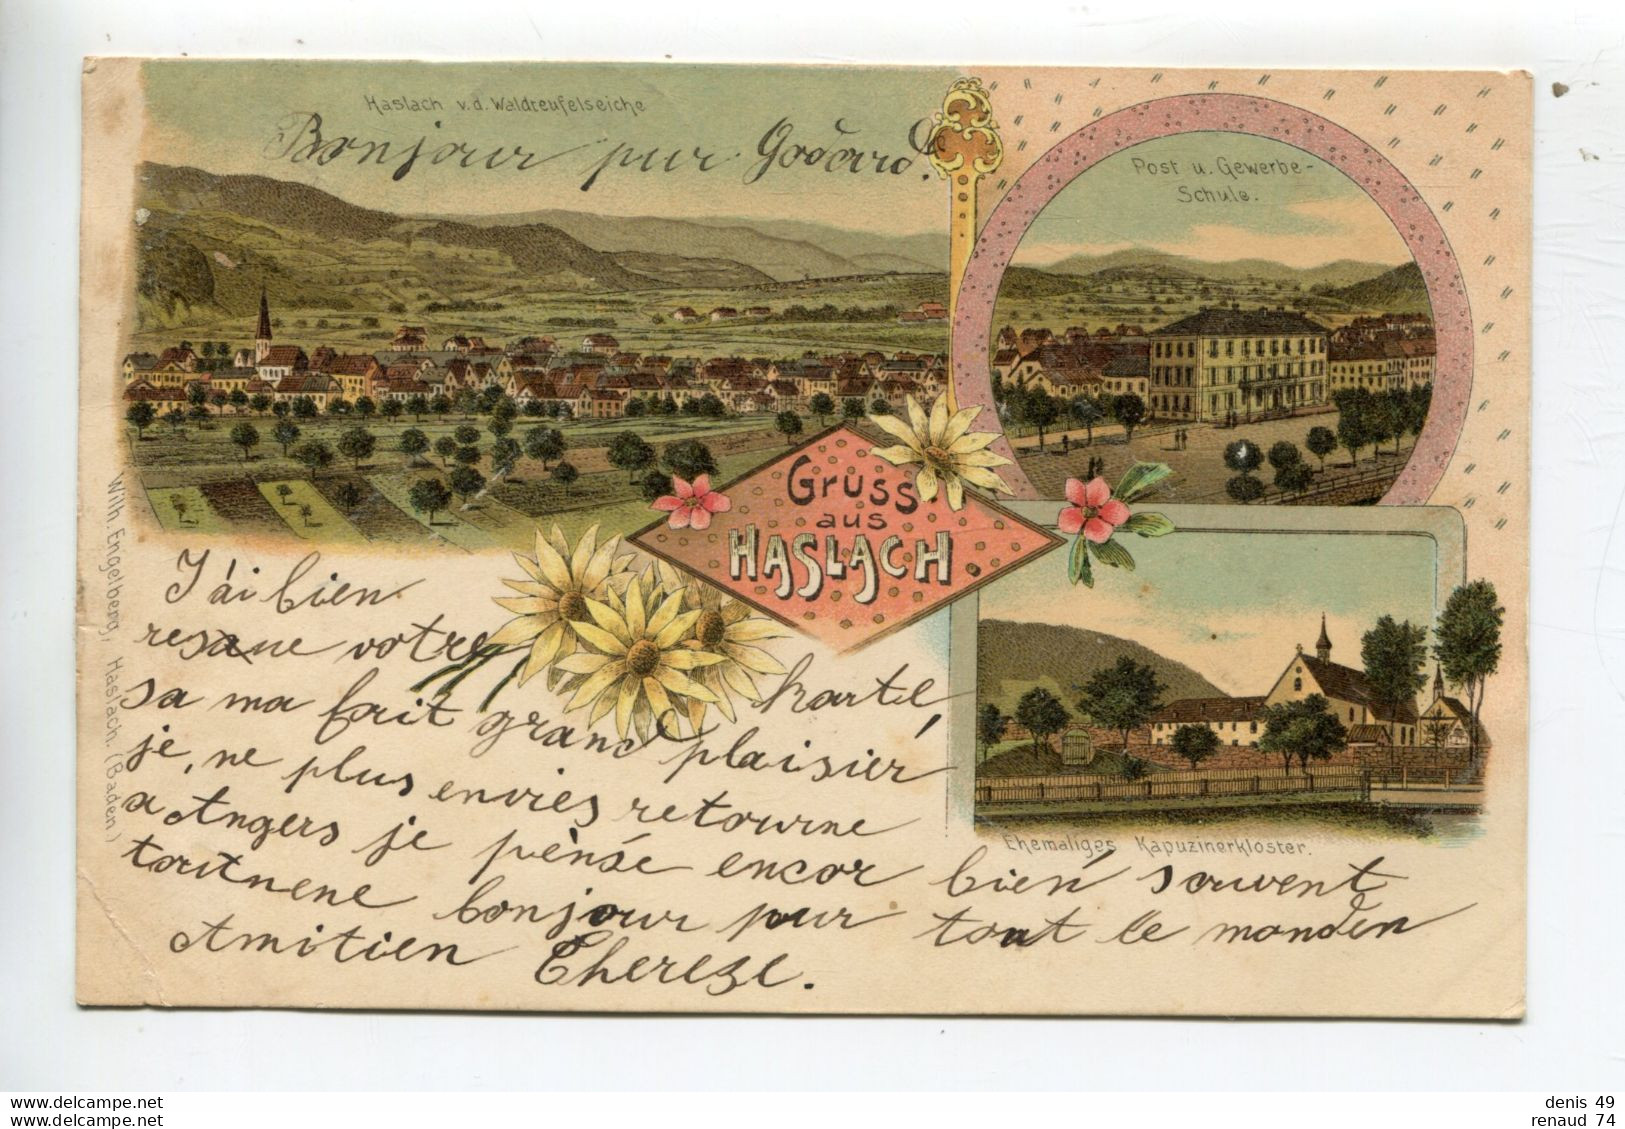 Haslach v. d. Waldteufelseiche
Bonjour pur Godard.
Post u. Gewerbe-
Schule.
Gruss
aus
HASLACH.
J'ai bien
resaue votre kartel
sa ma fait grand plaisier
je, ne plus envies retourne
a Angers je pènsé encor bien souvent
bonjour pur tout le monden
Amitien Chereze.
Ehemaliges Kapuzinerkloster.
Wilh. Engelberg, Haslach. (Baden)
www.delcampe.net
www.delcampe.net
denis 49
renaud 74